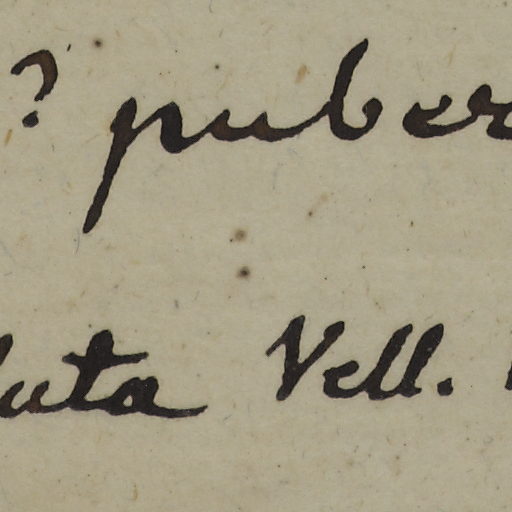 ? puber
uta Vell.